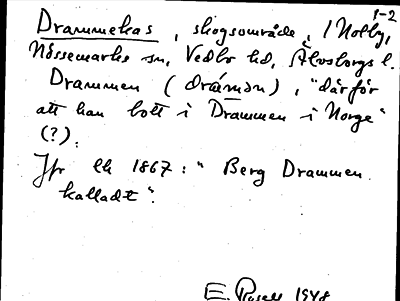 1-2
Drammekas, skogsområde, i Nolby,
Nössemarks sn, Vedbo hd, Älvsborgs l.
Drammen (drámən), "därför
att han bott i Drammen i Norge"
(?).
Jfr lk 1867: "Berg Drammen
kalladt".
E. Rosell 1948